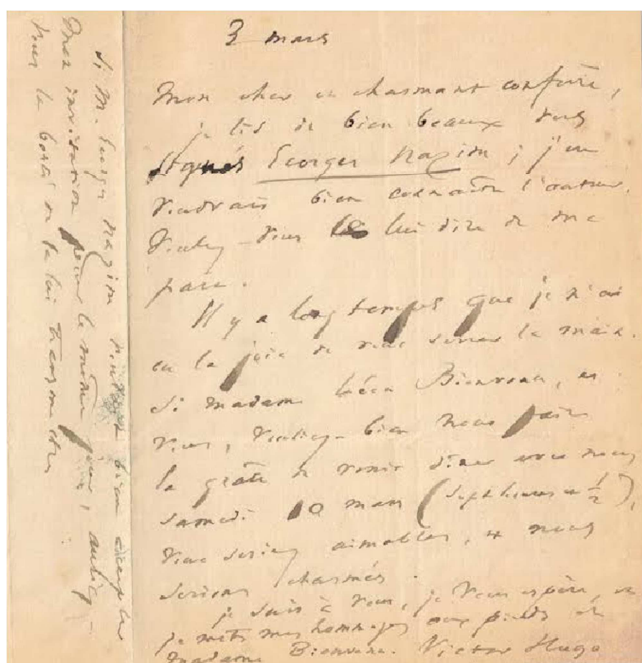 3 mars
Mon cher et charmant confrère,
je lis de bien beaux vers
signés Georges Nazim ; j'en
voudrais bien connaître l'auteur.
Voulez-vous le lui dire de ma
part.
Il y a longtemps que je n'ai
eu la joie de vous serrer la main.
Si madame Léon Bienvenu, et
vous, vouliez bien nous faire
la grâce de venir dîner avec nous
samedi 10 mars (sept heures et ½),
vous seriez aimables, et nous
serions charmés.
je suis à vous, je vous espère, et
je mets mes hommages aux pieds de
Madame Bienvenu. Victor Hugo
Si M. Georges Nazim voulait bien accepter
mon invitation pour le même jour, auriez-
vous la bonté de la lui transmettre